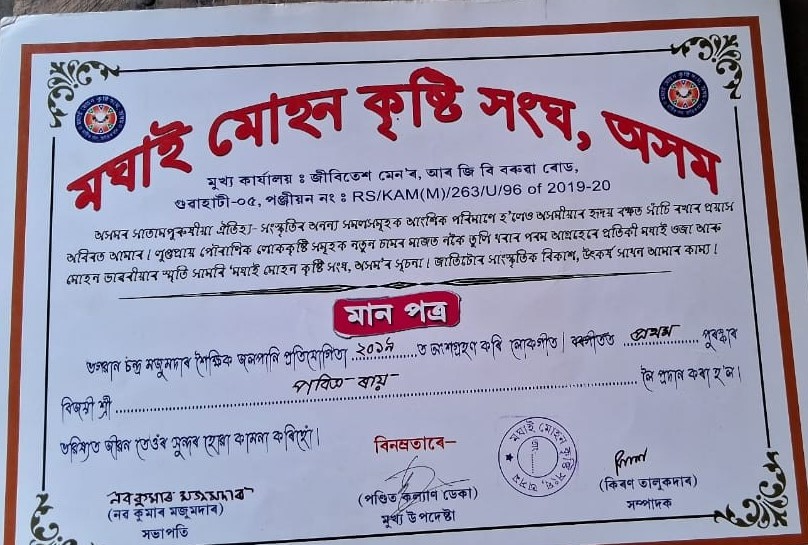 মঘাই মোহন কৃষ্টি সংঘ, অসম
মুখ্য কাৰ্যালয় : জীৱিতেশ মেন'ৰ, আৰ জি বি বৰুৱা ৰোড,
গুৱাহাটী-০৫, পঞ্জীয়ন নং : RS/KAM(M)/263/U/96 of 2019-20
অসমৰ সাতামপুৰুষীয়া ঐতিহ্য- সংস্কৃতিৰ অনন্য সমলসমূহক আংশিক পৰিমাণে হ'লেও অসমীয়াৰ হৃদয় বৃন্তত সাঁচি ৰখাৰ প্ৰয়াস
অবিৰত আমাৰ। লুপ্তপ্ৰায় পৌৰাণিক লোককৃষ্টি সমূহক নতুন চামৰ মাজত নকৈ তুলি ধৰাৰ পৰম আগ্ৰহেৰে প্ৰতিকী মঘাই ওজা আৰু
মোহন ভাৱৰীয়াৰ স্মৃতি সামৰি 'মঘাই মোহন কৃষ্টি সংঘ, অসম'ৰ সূচনা। জাতিটোৰ সাংস্কৃতিক বিকাশ, উৎকৰ্ষ সাধন আমাৰ কাম্য।
মান পত্ৰ
ভগৱান চন্দ্ৰ মজুমদাৰ শৈক্ষিক জলপানি প্ৰতিযোগিতা ২০১৯ ত অংশগ্ৰহণ কৰি লোকগীত / প্ৰথম পুৰস্কাৰ
বিজয়ী শ্ৰী পবিত্ৰ ৰায় লৈ প্ৰদান কৰা হ'ল।
ভৱিষ্যত জীৱন তেওঁৰ সুন্দৰ হোৱা কামনা কৰিছোঁ।
বিনম্ৰতাৰে–
মঘাই মোহন কৃষ্টি সংঘ, অসম
নবকুমাৰ মজুমদাৰ
(নৱ কুমাৰ মজুমদাৰ)
সভাপতি
(পণ্ডিত কল্যাণ ডেকা)
মুখ্য উপদেষ্টা
(কিৰণ তালুকদাৰ)
সম্পাদক